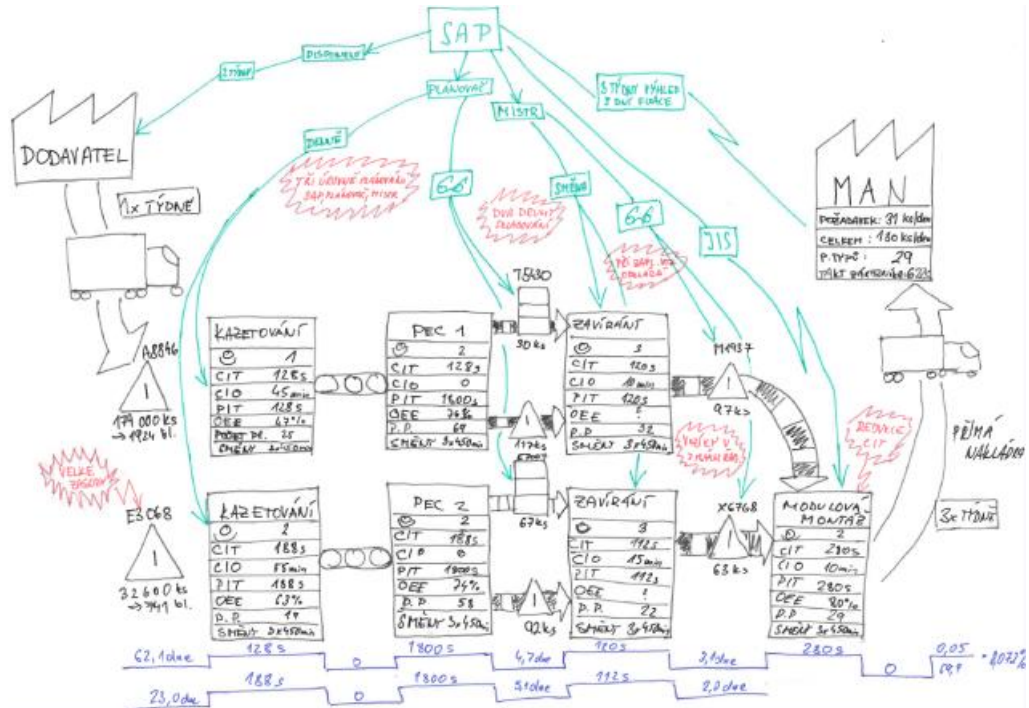 SAP
DISPONENT
2 TÝDNY
PLÁNOVAČ
MISTR
3 TÝDNY VÝHLED
DENNĚ
DODAVATEL
1x TÝDNĚ
TŘI ÚROVNĚ PLÁNOVÁNÍ
SAP, PLÁNOVAČ, MISTR
6-6
DVA DRUHY
SKLADOVÁNÍ
SMĚNA
6-6
JIS
MAN
POŽADAVEK: 31 ks/den
CELKEM: 180 ks/den
P. TYPŮ: 29
A8846
174 000 ks
→ 1924 bl.
VELKÉ
ZÁSOBY
E3068
32 600 ks
→ 741 bl.
KAZETOVÁNÍ
1
C/T 128s
C/O 45min
P/T 128s
OEE 47%
POČET PR. 25
SMĚNY 3x450min
PEC 1
2
C/T 128s
C/O 0
P/T 1800s
OEE 76%
P.P. 69
SMĚNY 3x450min
T5430
90 ks
117 ks
ZAVÍRÁNÍ
3
C/T 120s
C/O 10min
P/T 120s
OEE ?
P.P. 32
SMĚNY 3x450min
M1937
97 ks
REDUKCE
C/T
PŘÍMÁ
NAKLÁDKA
3x TÝDNĚ
KAZETOVÁNÍ
2
C/T 188s
C/O 55min
P/T 188s
OEE 63%
P.P. 17
SMĚNY 3x450min
PEC 2
2
C/T 188s
C/O 0
P/T 1800s
OEE 74%
P.P. 58
SMĚNY 3x450min
67 ks
92 ks
ZAVÍRÁNÍ
3
C/T 112s
C/O 15min
P/T 112s
OEE ?
P.P. 22
SMĚNY 3x450min
X6768
63 ks
MODULOVÁ
MONTÁŽ
2
C/T 280s
C/O 10min
P/T 280s
OEE 80%
P.P. 29
SMĚNY 3x450min
62,1 dne 128s 0 1800s 4,7 dne 120s 3,1 dne 280s 0 0,05
23,0 dne 188s 0 1800s 5,1 dne 112s 2,0 dne